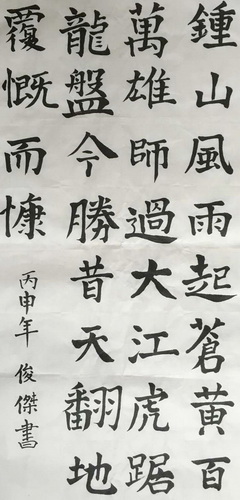 鍾山風雨起蒼黄百
萬雄師過大江虎踞
龍盤今勝昔天翻地
覆慨而慷
丙申年俊傑書